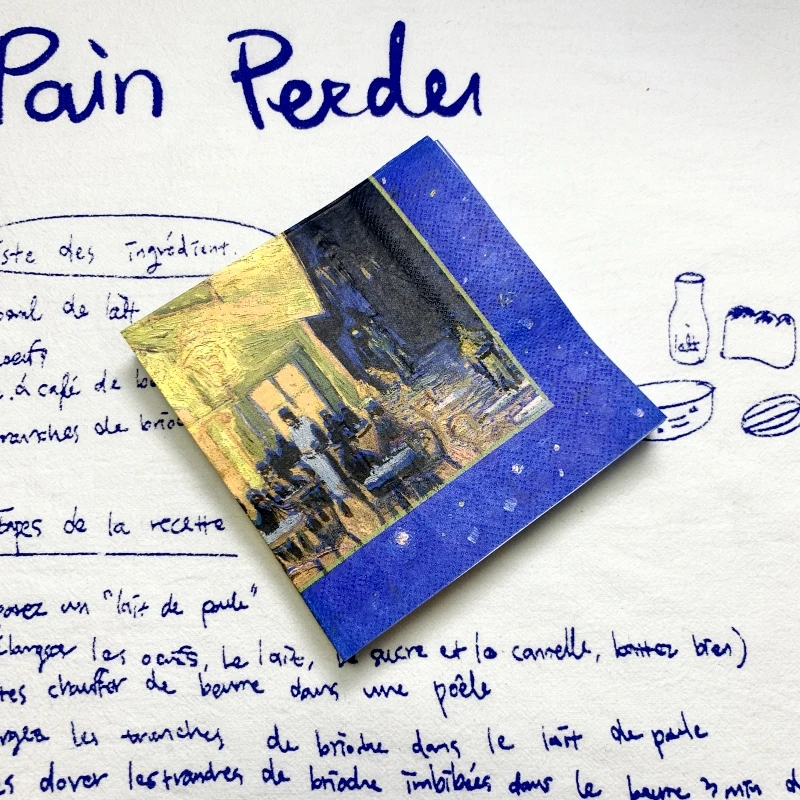 Pain Perdu
iste des ingrédient.
de lait
oeufs
à café de
tranches de
lait
Etapes de la recette
parez un "lait de poule"
élanger les oeufs, le lait, le sucre et la cannelle, battez bien)
tes chauffer de beurre dans une poêle
rgez les tranches de brioche dans le lait de poule
es dorer les tranches de brioche imbibées dans le beurre 3 min d